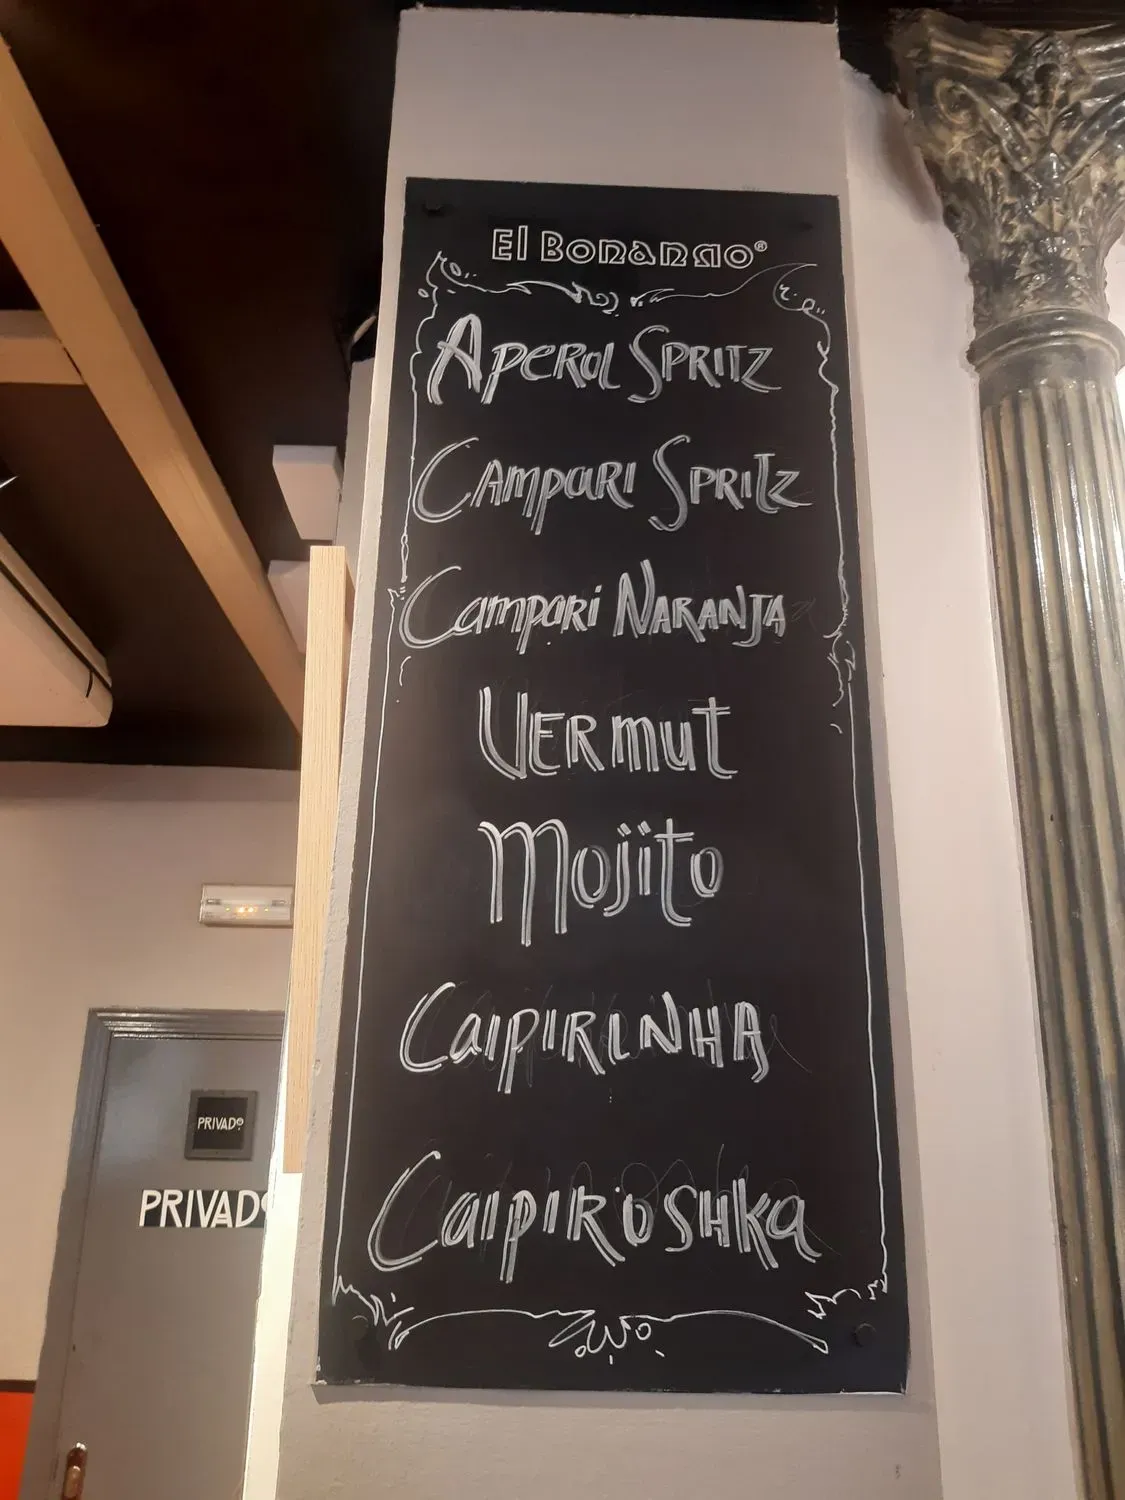 El Bonanno®
Aperol Spritz
Campari Spritz
Campari Naranja
Vermut
Mojito
Caipirinha
Caipiroshka
PRIVADO
PRIVADO